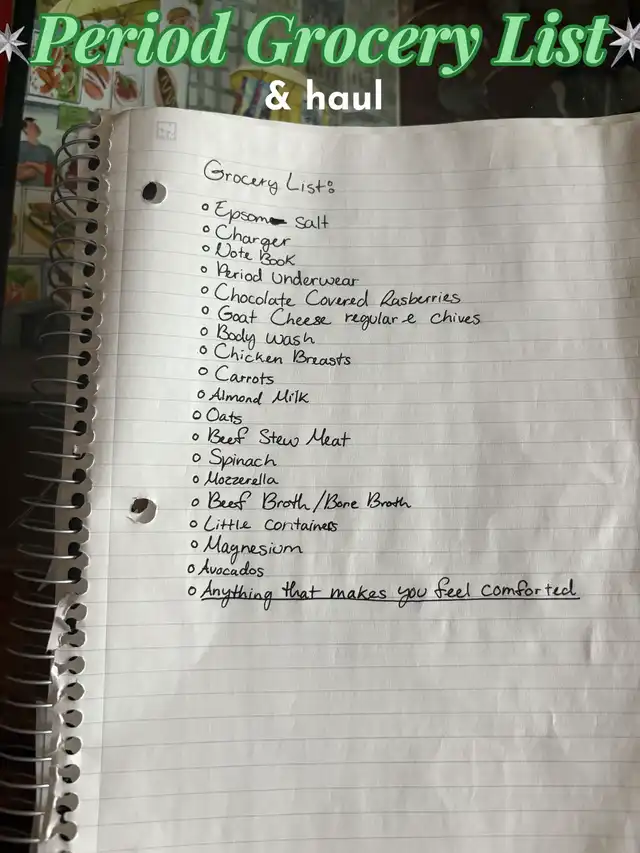 Period Grocery List
& haul
Grocery List:
Epsom salt
Charger
Note Book
Period Underwear
Chocolate Covered Rasberries
Goat Cheese regular & chives
Body Wash
Chicken Breasts
Carrots
Almond Milk
Oats
Beef Stew Meat
Spinach
Mozzerella
Beef Broth/Bone Broth
Little containers
Magnesium
Avocados
Anything that makes you feel comforted